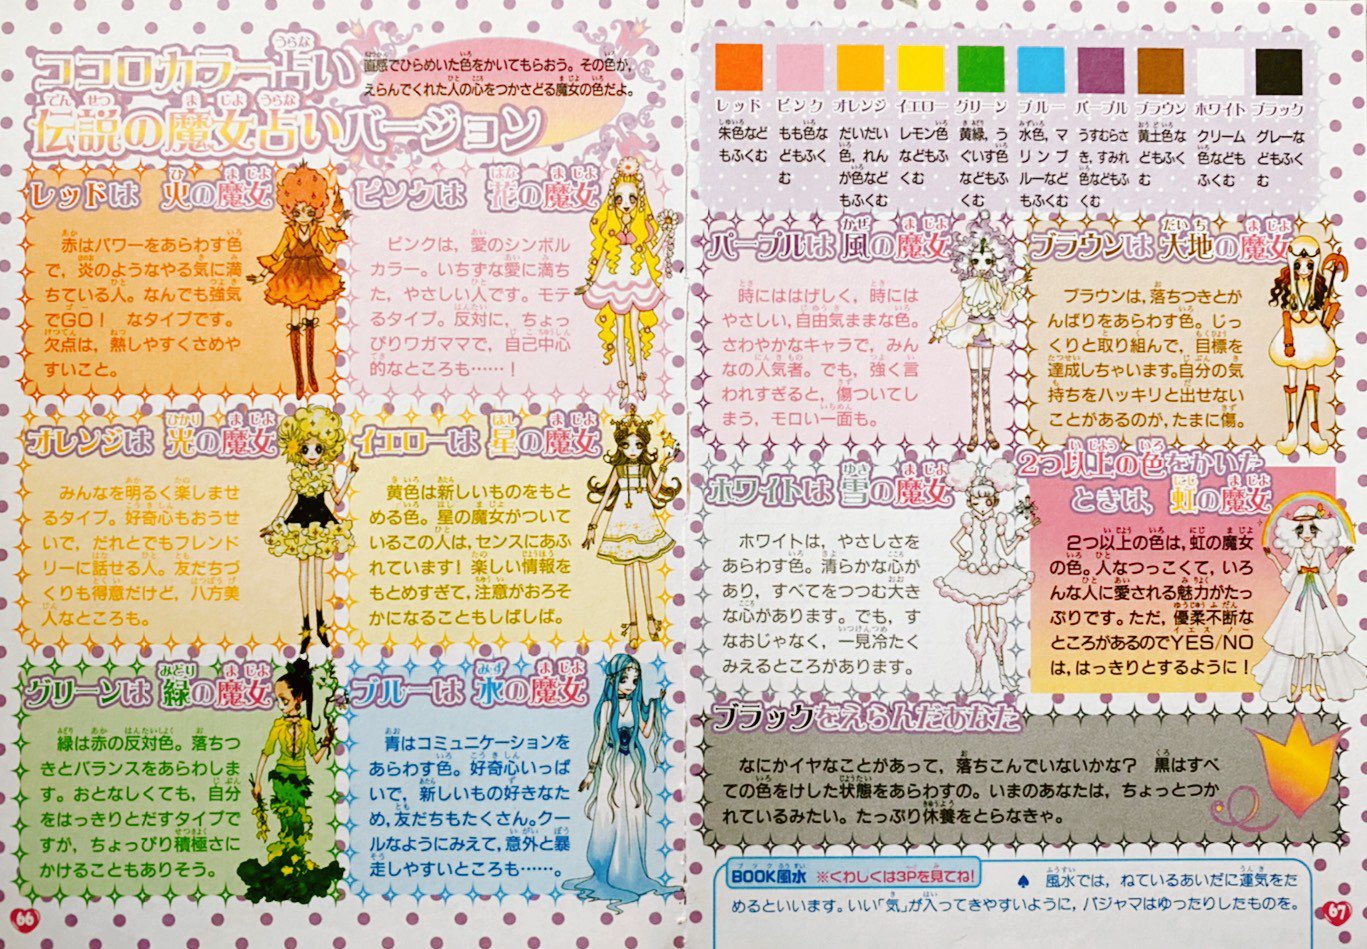 ココロカラー占い
伝説の魔女占いバージョン
直感でひらめいた色をかいてもらおう。その色が,
えらんでくれた人の心をつかさどる魔女の色だよ。
レッドは 火の魔女
赤はパワーをあらわす色
で, 炎のようなやる気に満
ちている人。なんでも強気
でGO! なタイプです。
欠点は, 熱しやすくさめや
すいこと。
ピンクは 花の魔女
ピンクは, 愛のシンボル
カラー。いちずな愛に満ち
た, やさしい人です。モテ
るタイプ。反対に, ちょっ
ぴりワガママで, 自己中心
的なところも……!
オレンジは 光の魔女
みんなを明るく楽しませ
るタイプ。好奇心もおうせ
いで, だれとでもフレンド
リーに話せる人。友だちづ
くりも得意だけど, 八方美
人なところも。
イエローは 星の魔女
黄色は新しいものをもと
める色。星の魔女がついて
いるこの人は, センスにあふ
れています! 楽しい情報を
もとめすぎて, 注意がおろそ
かになることもしばしば。
グリーンは 緑の魔女
緑は赤の反対色。落ちつ
きとバランスをあらわしま
す。おとなしくても, 自分
をはっきりとだすタイプで
すが, ちょっぴり積極さに
かけることもありそう。
ブルーは 水の魔女
青はコミュニケーションを
あらわす色。好奇心いっぱ
いで, 新しいもの好きなた
め, 友だちもたくさん。クー
ルなようにみえて, 意外と暴
走しやすいところも……。
66
レッド
朱色など
もふくむ
ピンク
もも色な
どもふく
む
オレンジ
だいだい
色, れん
が色など
もふくむ
イエロー
レモン色
などもふ
くむ
グリーン
黄緑, う
ぐいす色
などもふ
くむ
ブルー
水色, マ
リンブ
ルーなど
もふくむ
パープル
うすむらさ
き, すみれ
色などもふ
くむ
ブラウン
黄土色な
どもふく
む
ホワイト
クリーム
色なども
ふくむ
ブラック
グレーな
どもふく
む
パープルは 風の魔女
時にははげしく, 時には
やさしい, 自由気ままな色。
さわやかなキャラで, みん
なの人気者。でも, 強く言
われすぎると, 傷ついてし
まう, モロい一面も。
ブラウンは 大地の魔女
ブラウンは, 落ちつきとが
んばりをあらわす色。じっ
くりと取り組んで, 目標を
達成しちゃいます。自分の気
持ちをハッキリと出せない
ことがあるのが, たまに傷。
ホワイトは 雪の魔女
ホワイトは, やさしさを
あらわす色。清らかな心が
あり, すべてをつつむ大き
な心があります。でも, す
なおじゃなく, 一見冷たく
みえるところがあります。
2つ以上の色をかいた
ときは, 虹の魔女
2つ以上の色は, 虹の魔女
の色。人なつっこくて, いろ
んな人に愛される魅力がたっ
ぷりです。ただ, 優柔不断な
ところがあるのでYES/NO
は, はっきりとするように!
ブラックをえらんだあなた
なにかイヤなことがあって, 落ちこんでいないかな? 黒はすべ
ての色をけした状態をあらわすの。いまのあなたは, ちょっとつか
れているみたい。たっぷり休養をとらなきゃ。
BOOK風水 ※くわしくは3Pを見てね!
♠ 風水では, ねているあいだに運気をた
めるといいます。いい「気」が入ってきやすいように, パジャマはゆったりしたものを。
67